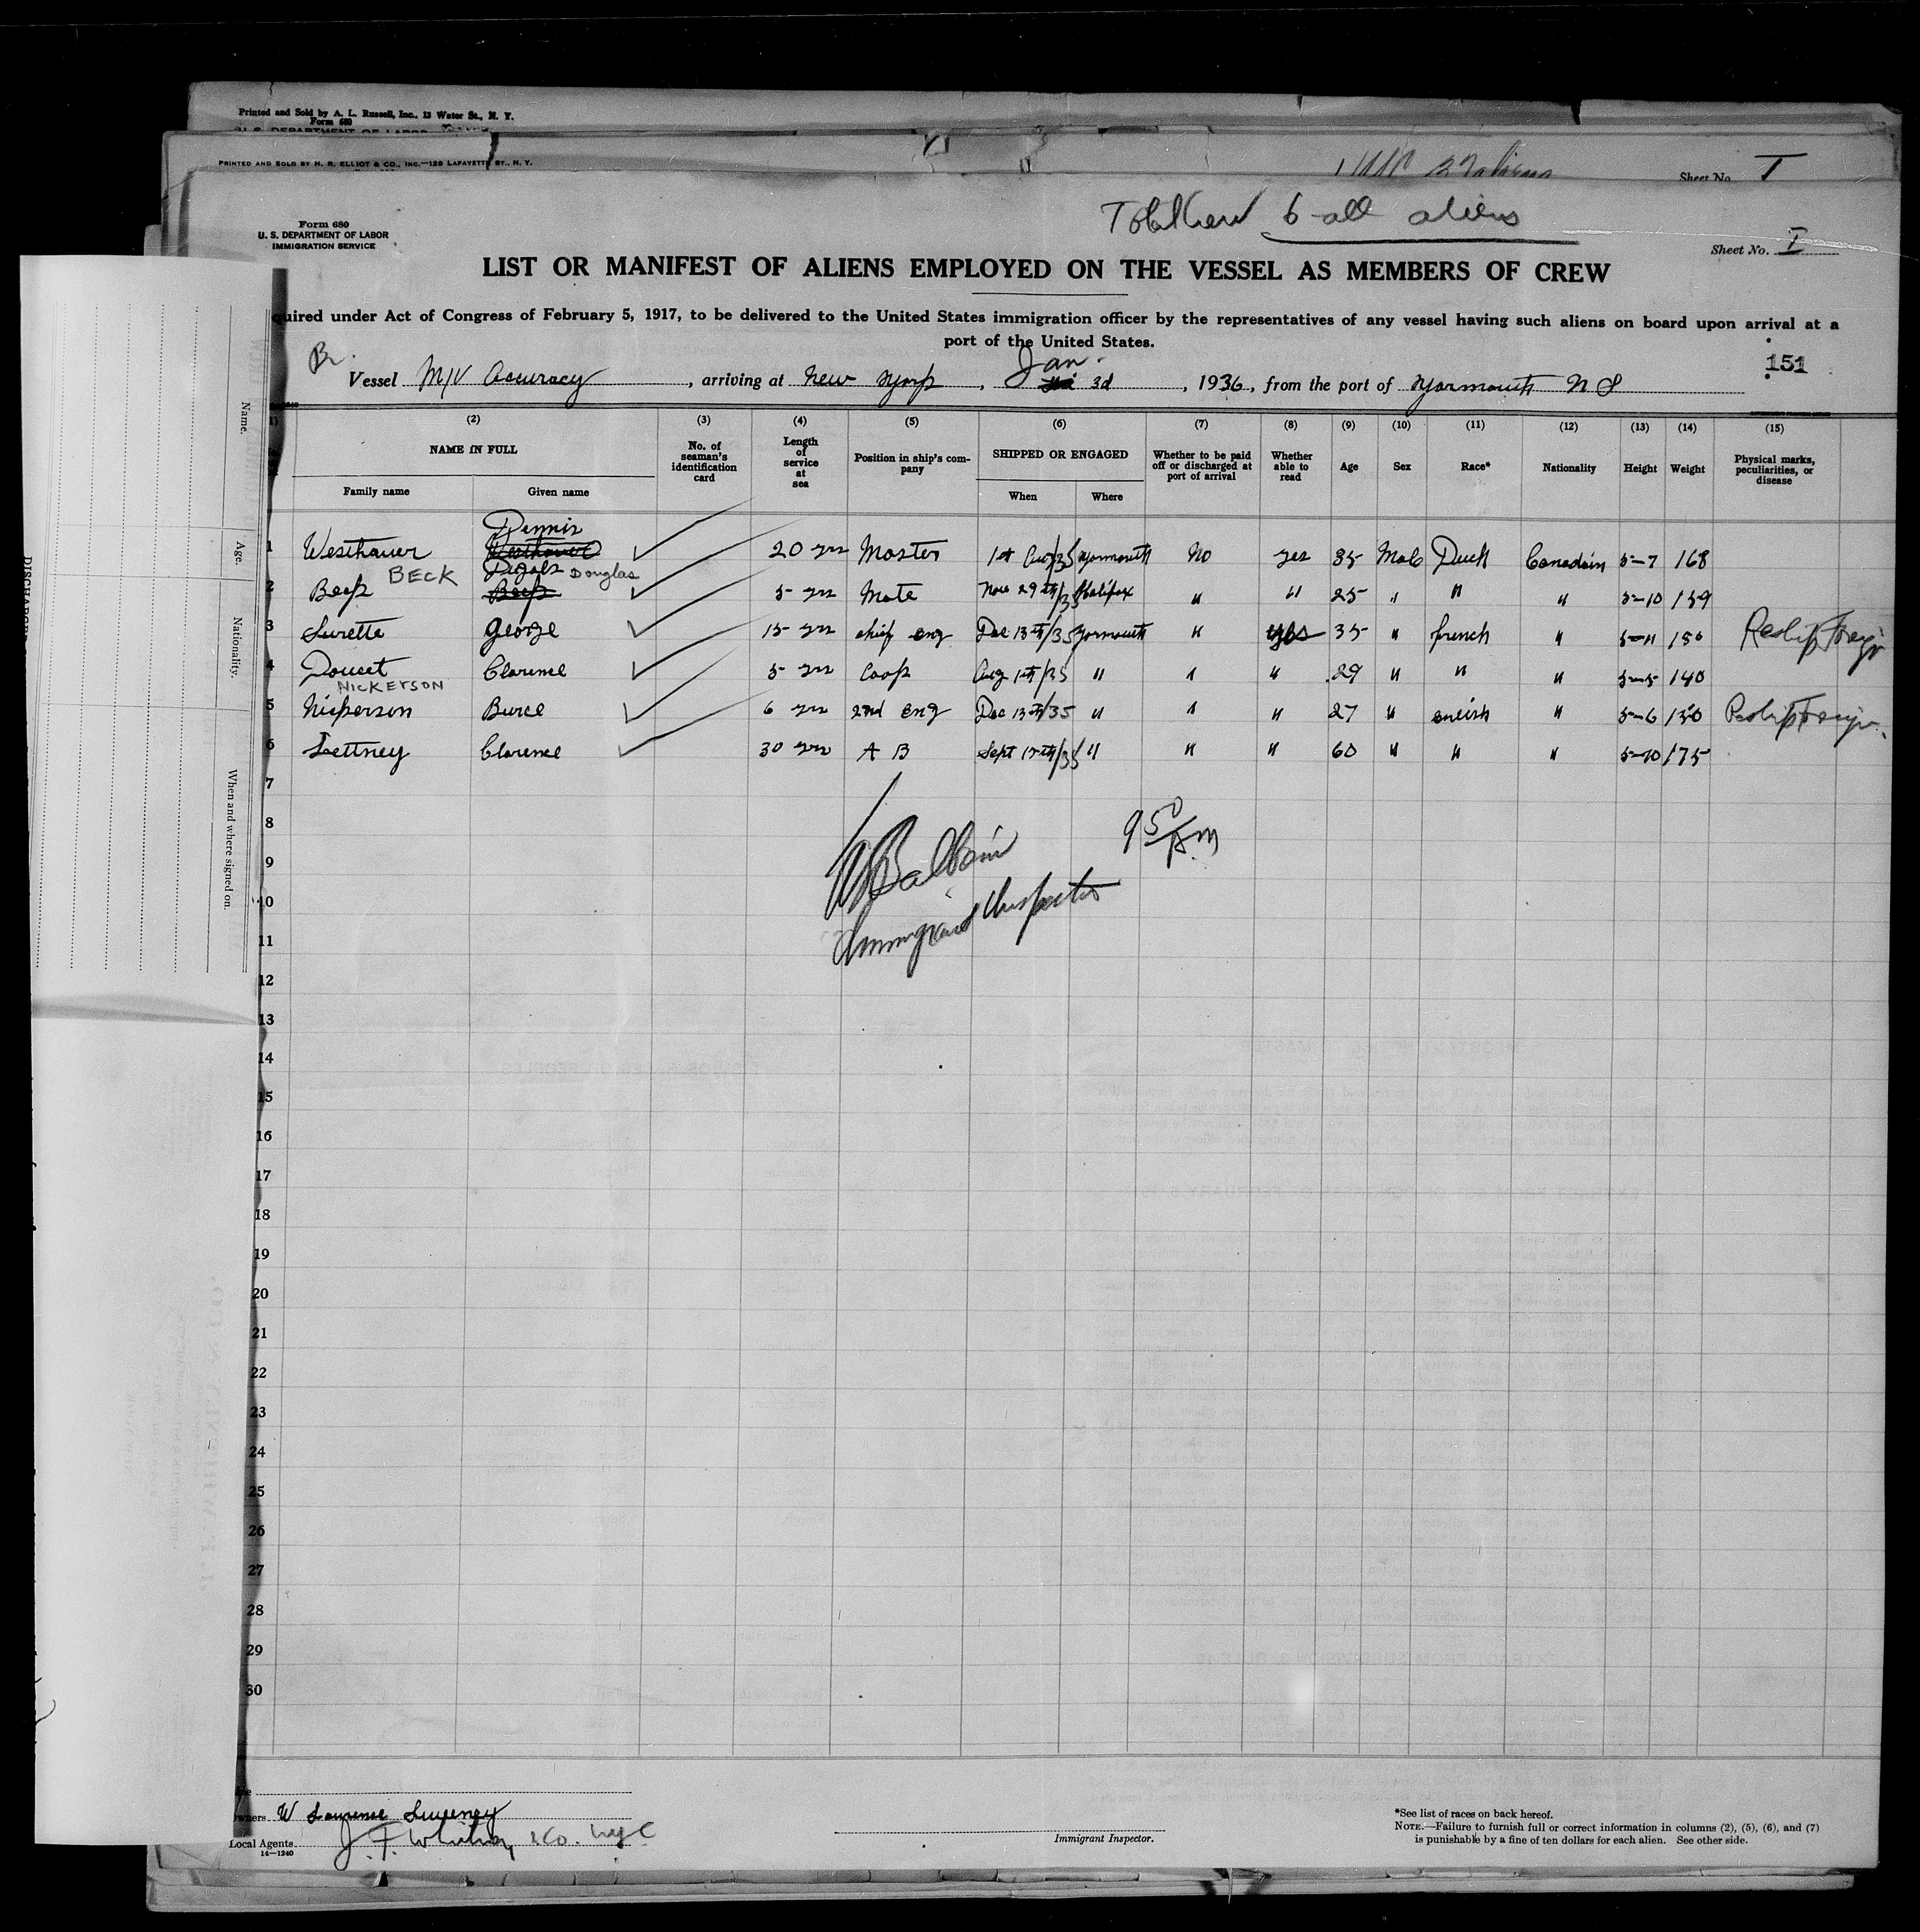 Printed and Sold by A. L. Russell, Inc., 13 Water St., N. Y.
Form 680
U. S. DEPARTMENT OF LABOR
PRINTED AND SOLD BY H. R. ELLIOT & CO., INC.—128 LAFAYETTE ST., N. Y.
Sheet No. I
Total Crew 6 all aliens
Form 680
U. S. DEPARTMENT OF LABOR
IMMIGRATION SERVICE
Sheet No. I
LIST OR MANIFEST OF ALIENS EMPLOYED ON THE VESSEL AS MEMBERS OF CREW
quired under Act of Congress of February 5, 1917, to be delivered to the United States immigration officer by the representatives of any vessel having such aliens on board upon arrival at a
port of the United States.
Br. Vessel M/V Accuracy, arriving at New York, Jan. 3d, 1936, from the port of Yarmouth N S
151
(2) (3) (4) (5) (6) (7) (8) (9) (10) (11) (12) (13) (14) (15)
NAME IN FULL No. of seaman's identification card Length of service at sea Position in ship's company SHIPPED OR ENGAGED Whether to be paid off or discharged at port of arrival Whether able to read Age Sex Race* Nationality Height Weight Physical marks, peculiarities, or disease
Family name Given name When Where
1 Westhauer Dennis 20 yrs Master 1st Aug/35 Yarmouth No yes 35 Male Duch Canadain 5-7 168
2 Beck BECK Dugals Douglas 5 yrs Mate Nov 29th/35 Halifax " " 25 " " " 5-10 159
3 Surette George 15 yrs chief eng Dec 13th/35 Yarmouth " yes 35 " french " 5-11 150 Reship Foreign
4 Doucet Clarence 5 yrs Cook Aug 1th/35 " " " 29 " " " 5-5 140
NICKERSON
5 Nickerson Burce 6 yrs 2nd eng Dec 13th/35 " " " 27 " enlish " 5-6 150 Reship Foreign
6 Lettney Clarence 30 yrs A B Sept 12th/35 " " " 60 " " " 5-10 175
7
8
9
10
11
12
13
14
15
16
17
18
19
20
21
22
23
24
25
26
27
28
29
30
9 50 AM
Immigrant Inspector
Name.
Age.
Nationality.
When and where signed on.
Owners W Laurence Sweeney
Local Agents J. F. Whitney & Co. NYC
14—1240
Immigrant Inspector.
*See list of races on back hereof.
NOTE.—Failure to furnish full or correct information in columns (2), (5), (6), and (7)
is punishable by a fine of ten dollars for each alien. See other side.